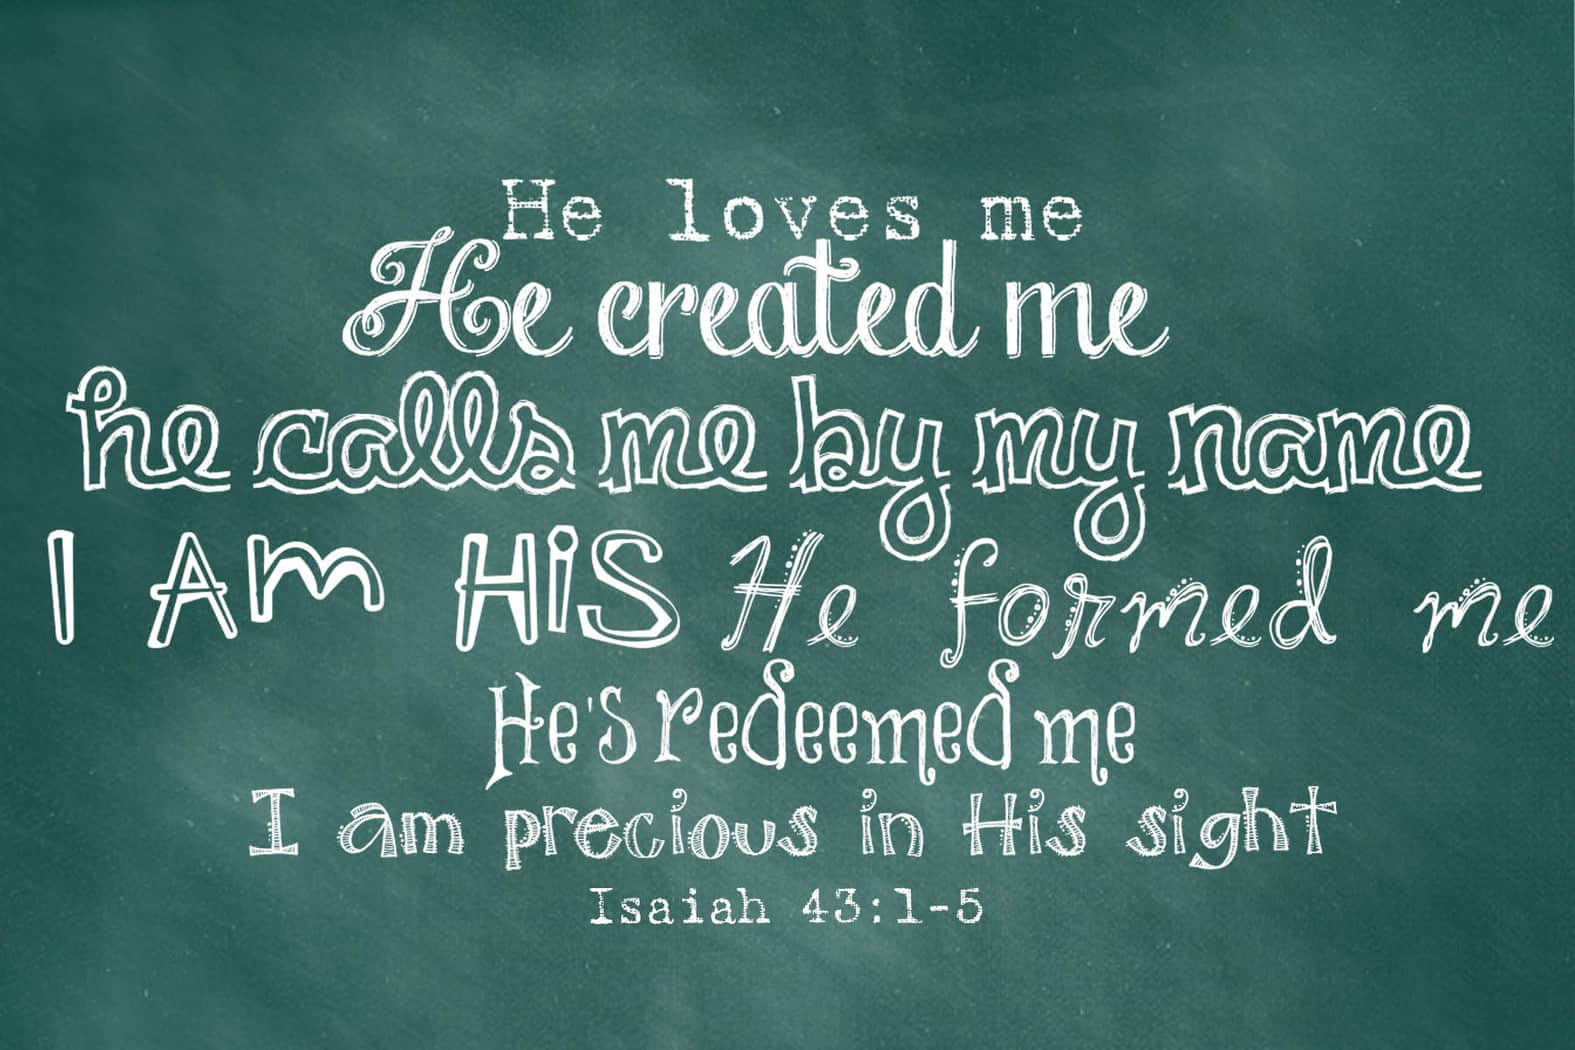 He loves me
He created me
he calls me by my name
I Am HiS He formed me
He's redeemed me
I am precious in His sight
Isaiah 43:1-5